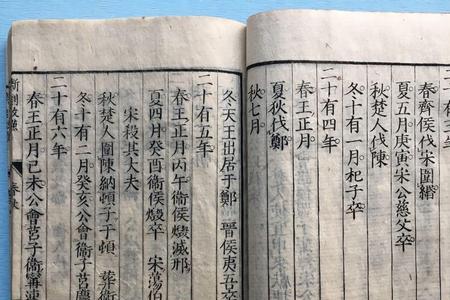 三年
春齊侯伐宋圍緡
夏五月庚寅宋公慈父卒
秋楚人伐陳
冬十有一月杞子卒
二十有四年
春王正月
夏狄伐鄭
秋七月
冬天王出居于鄭 晉侯夷吾卒
二十有五年
春王正月丙午衞侯燬滅邢
夏四月癸酉衞侯燬卒 宋蕩伯
宋殺其大夫
秋楚人圍陳納頓子于頓 葬衞
冬十有二月癸亥公會衞子莒慶
二十有六年
春王正月己未公會莒子衞甯速